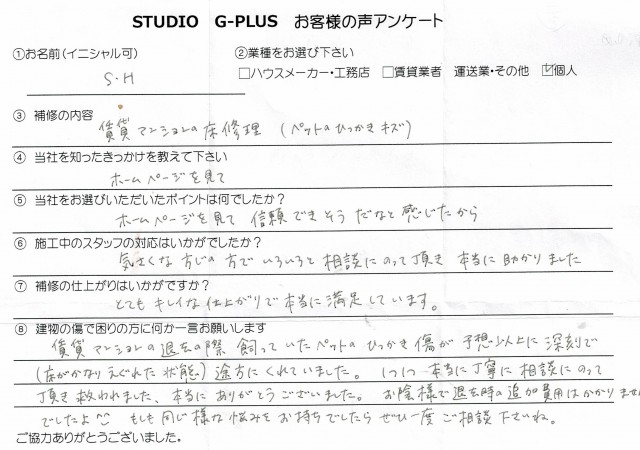 STUDIO G-PLUS お客様の声アンケート
①お名前(イニシャル可) ②業種をお選び下さい
S・H □ハウスメーカー・工務店 □賃貸業者 運送業・その他 ☑個人
③ 補修の内容
賃貸マンションの床修理 (ペットのひっかきキズ)
④ 当社を知ったきっかけを教えて下さい
ホームページを見て
⑤ 当社をお選びいただいたポイントは何でしたか?
ホームページを見て 信頼できそうだなと感じたから
⑥ 施工中のスタッフの対応はいかがでしたか?
気さくな感じの方でいろいろと相談にのって頂き 本当に助かりました
⑦ 補修の仕上がりはいかがですか?
とてもキレイな仕上がりで本当に満足しています。
⑧ 建物の傷で困りの方に何か一言お願いします
賃貸マンションの退去の際 飼っていたペットのひっかき傷が予想以上に深刻で
(床がかなりえぐれた状態) 途方にくれていました。 1つ1つ本当に丁寧に相談にのって
頂き救われました、本当にありがとうございました。 お陰様で退去時の追加費用はかかりませ
でしたよ^^ もしも同じ様な悩みをお持ちでしたらぜひ一度ご相談下さいね。
ご協力ありがとうございました。